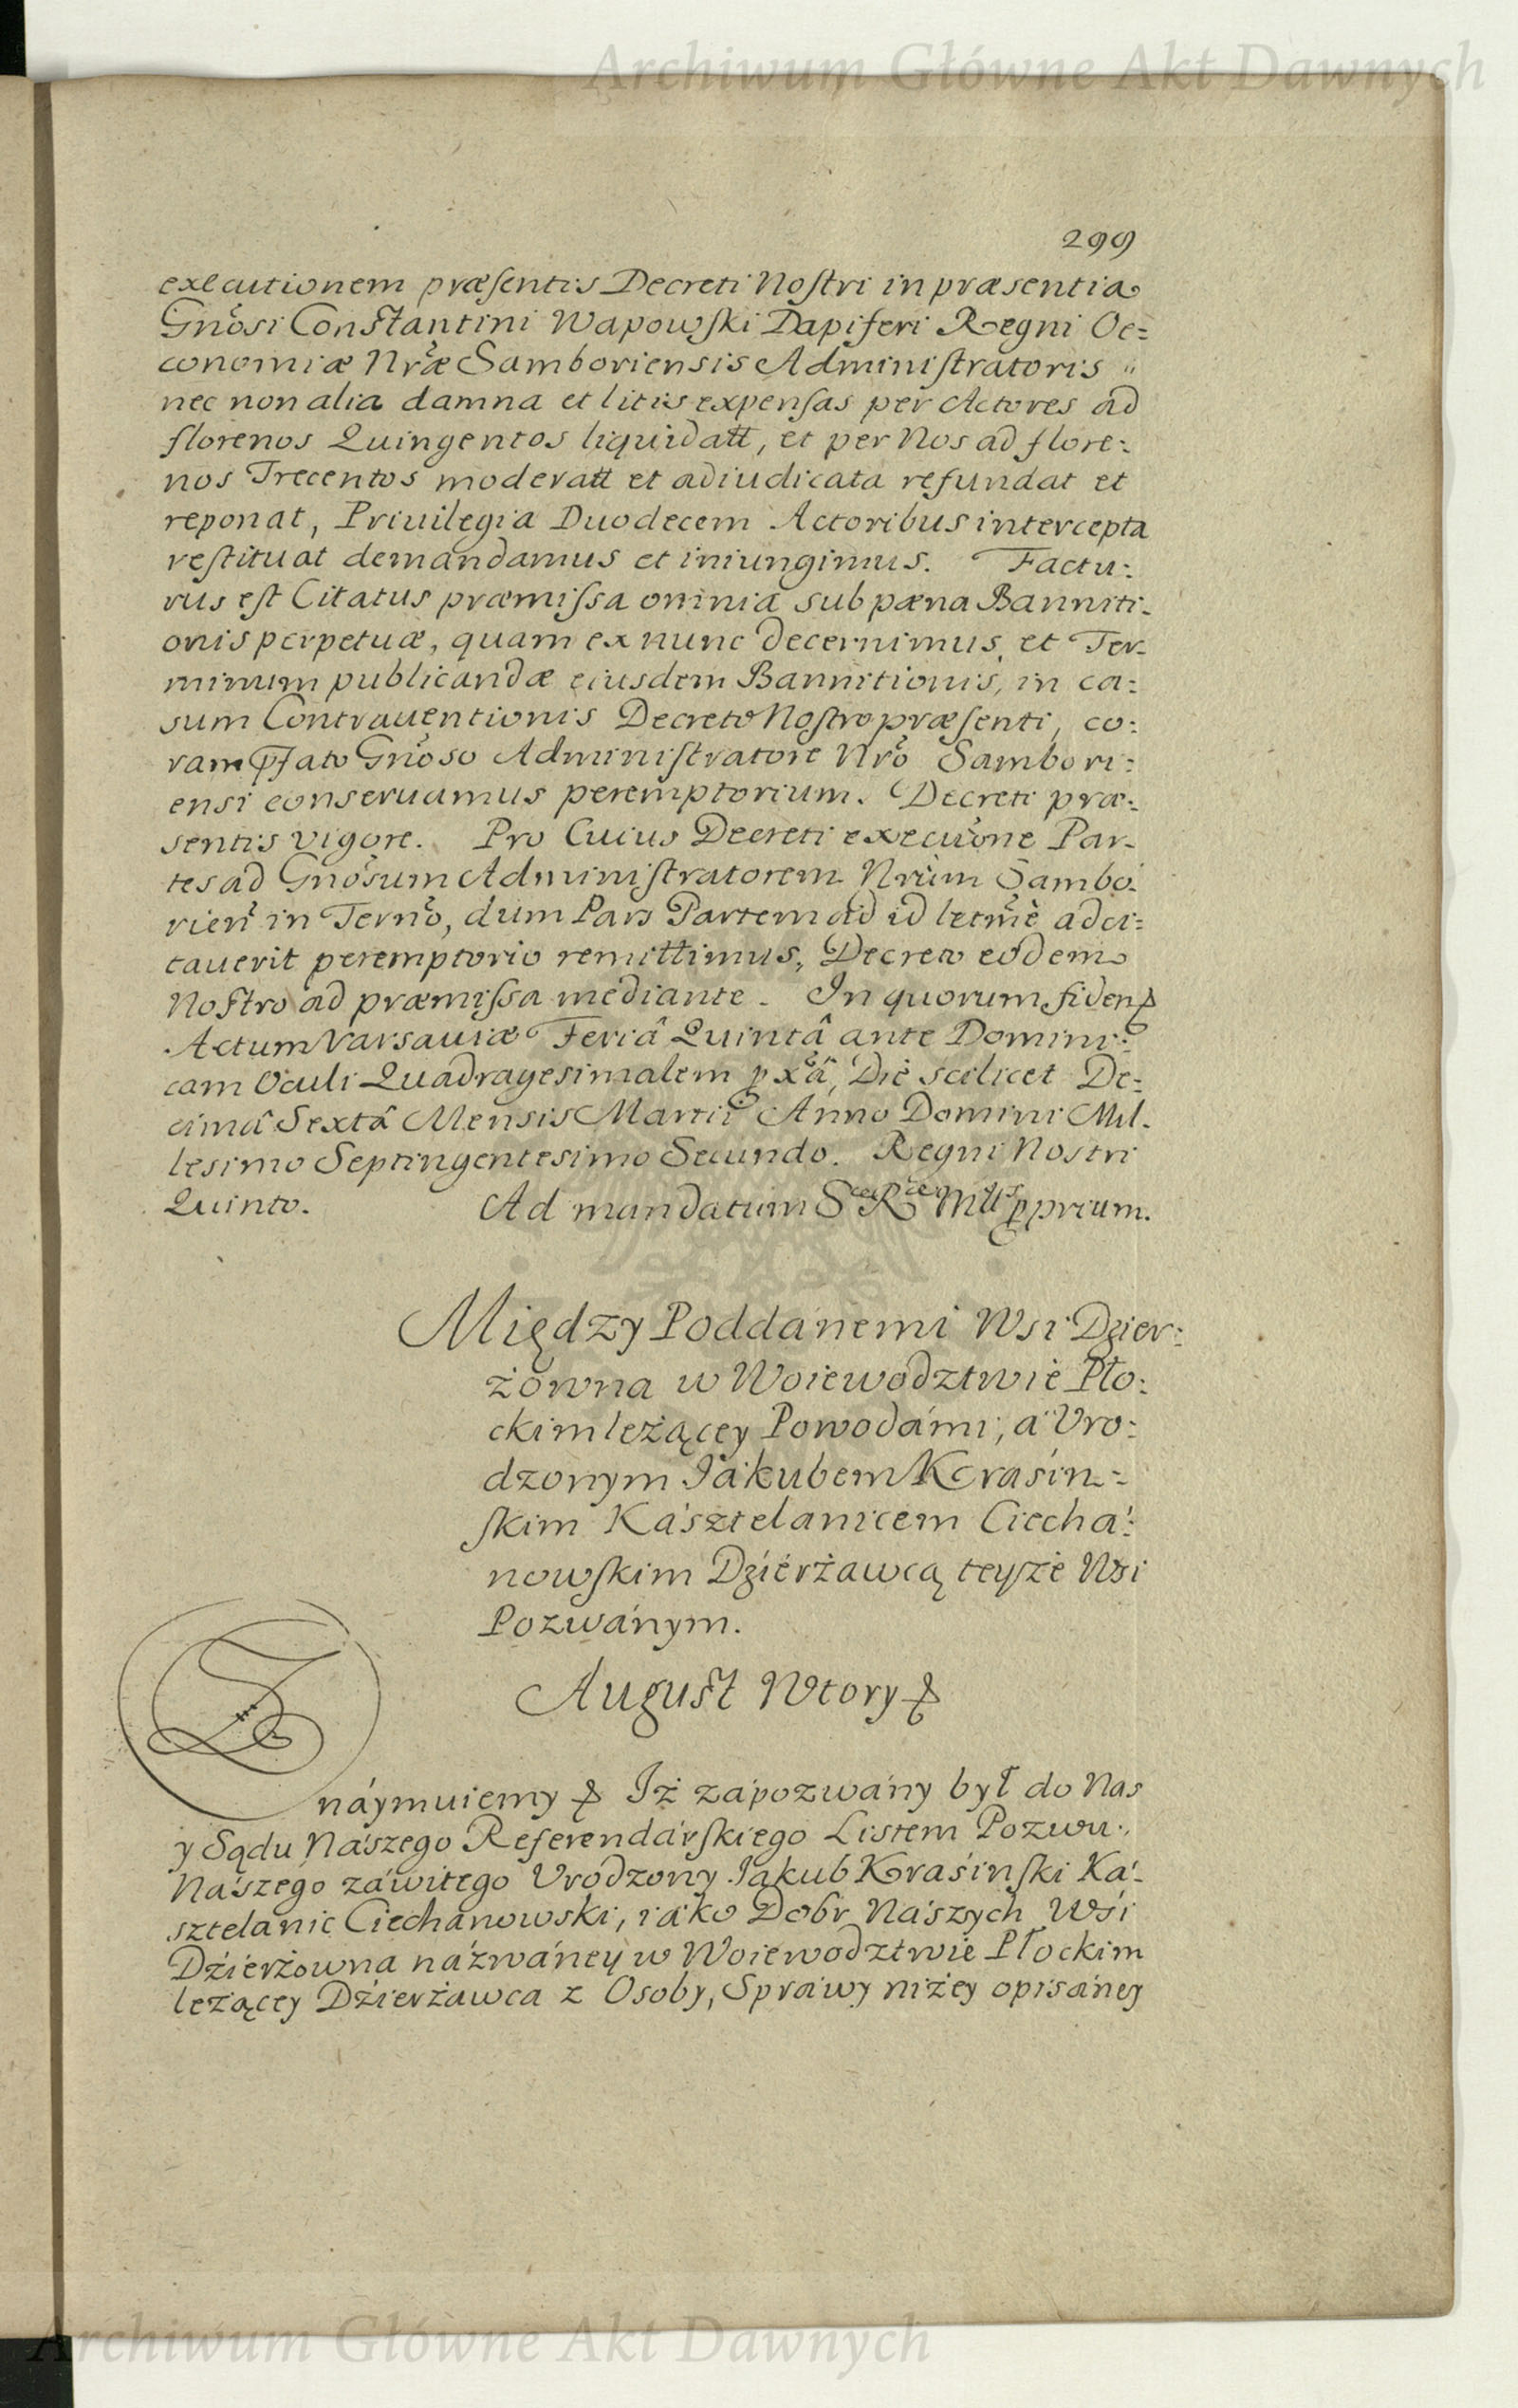 Archiwum Główne Akt Dawnych
299
executionem præsentis Decreti Nostri in præsentia
Gnosi Constantini Wapowski Dapiferi Regni Oe=
conomiæ Nræ Samboriensis Administratoris
nec non alia damna et litis expensas per Actores ad
florenos Quingentos liquidatt, et per Nos ad flore:
nos Trecentos moderatt et adiudicata refundat et
reponat, Priuilegia Duodecem Actoribus intercepta
restituat demandamus et iniungimus. Factu:
rus est Citatus præmissa omnia sub pæna Banniti-
onis perpetuæ, quam ex nunc decernimus, et Ter-
minum publicandæ eiusdem Bannitionis, in ca:
sum Contrauentionis Decreto Nostro præsenti, co:
ram pfato Gnoso Administratore Nro Sambori:
ensi conseruamus peremptorium. Decreti præ:
sentis vigore. Pro Cuius Decreti execuone Par-
tes ad Gnosum Administratorem Nrum Sambo-
rien in Terno, dum Pars Partem ad id letme adci=
tauerit peremptorio remittimus, Decreto eodem
Nostro ad præmissa mediante. In quorum fidem
Actum Varsauiæ Feriâ Quintâ ante Domini:
cam Oculi Quadragesimalem pxâ, Die scilicet De:
cimâ Sextâ Mensis Martii Anno Domini Mil-
lesimo Septingentesimo Secundo. Regni Nostri
Quinto. Ad mandatum S R Mtts pprium.
Między Poddánemi Wsi Dzier:
żowna w Woiewodztwie Pło:
ckim leżącey Powodámi, á Vro:
dzonym Jákubem Krásin=
skim Kásztelanicem Ciechá:
nowskim Dzierżawcą teyże Wsi
Pozwánym.
August Wtory
Znáymuiemy Iż zápozwány był do Nas
y Sądu Nászego Referendárskiego Listem Pozwu
Nászego záwitego Vrodzony Jakub Krasinski Ká-
sztelanic Ciechánowski, iáko Dobr Nászych Wśi
Dźierżowna názwáney w Woiewodztwie Płockim
leżącey Dźierżawca z Osoby, Spráwy niżey opisáney
Archiwum Główne Akt Dawnych